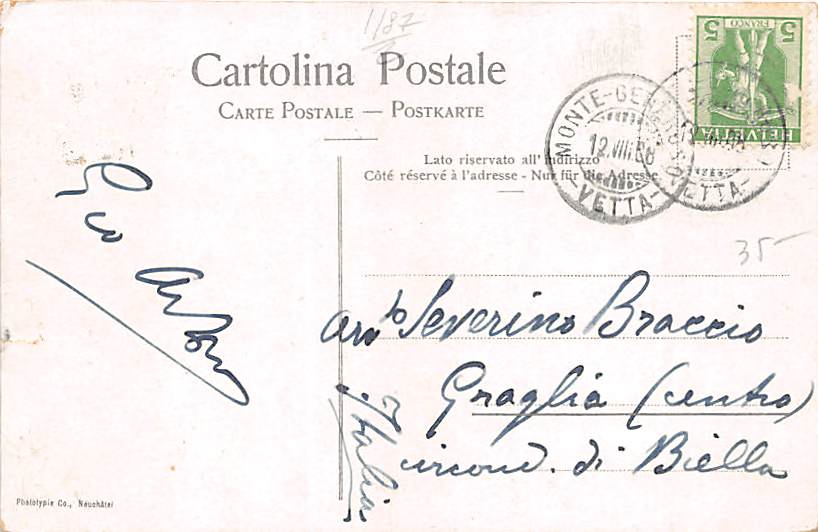 1/87
Cartolina Postale
CARTE POSTALE — POSTKARTE
Lato riservato all' indirizzo
Côté réservé à l'adresse - Nur für die Adresse
5 FRANCO 5
HELVETIA
MONTE-GENEROSO
12.VIII.08
-VETTA-
-VETTA-
35-
Severino Braccio
Graglia (centro)
circond. di Biella
Italia
Phototypie Co., Neuchâtel